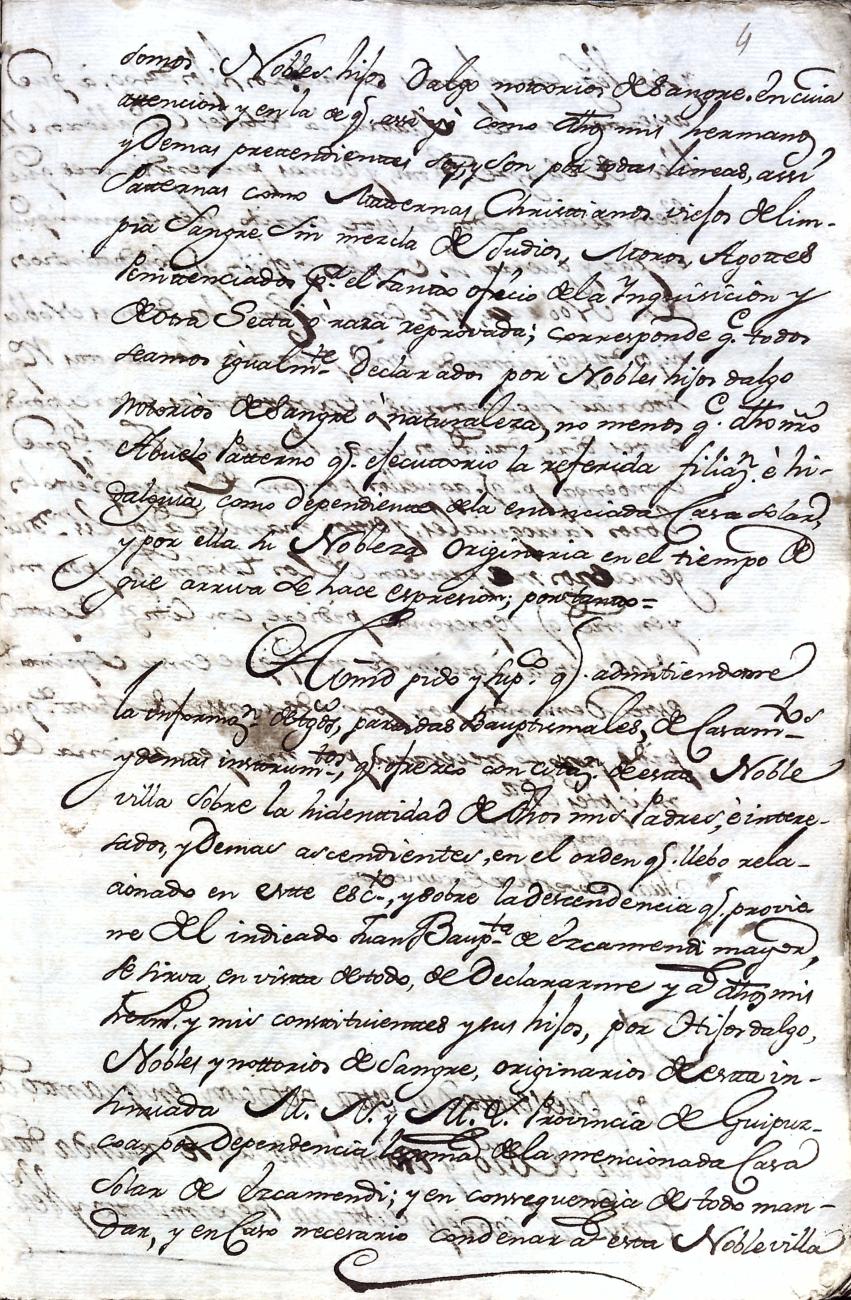 4
somos Nobles hijos dalgo nottorios de sangre. en cuia
attencion y en la de q.e assi yo como dhos mis hermanos
y Demas prettendienttes soy y son por todas lineas, assi
Patternas como Matternas Christianos viejos de lim-
pia Sangre Sin mezcla de Judios, Moros, Agottes
Penittenciados p.r el Santto oficio de la Ynquisicion y
de otra Secta, ò raza reprovada; corresponde q.e todos
seamos igualm.te Declarados por Nobles hijos dalgo
Notorios de Sangre ò naturaleza, no menos q.e dho nrõ
Abuelo Patterno q.e ejecuttorio la referida filiaz.n è hi-
dalguia, como dependiente de la enunciada Casa solar,
y por ella su Nobleza Originaria en el tiempo de
que arriva se hace espresion; por tanto=
A Vmd pido y sup.co q.e admitiendome
la informaz.n de tgos, partidas Bauptismales, de Casam.tos
y demas instrum.tos, q.e ofrezco con citaz.n de esta Noble
villa sobre la hidenttidad de dhos mis Padres, è intere-
sados, y Demas ascendientes, en el orden q.e llebo rela-
cionado en estte esc.to, y sobre la descendencia q.e provie
ne del indicado Juan Baup.ta de Ezcamendi mayor,
se sirva en vista de todo, de Declararme y a dhos mis
herm.s y mis constituientes y sus hijos, por Hijosdalgo,
Nobles y nottorios de Sangre, originarios de esta in-
sinuada M. N. y M. L. Provincia de Guipuz-
coa, por Dependencia de la mencionada Casa
Solar de Ezcamendi; y en consequencia de todo man-
dar, y en Caso necesario condenar a esta Noble villa